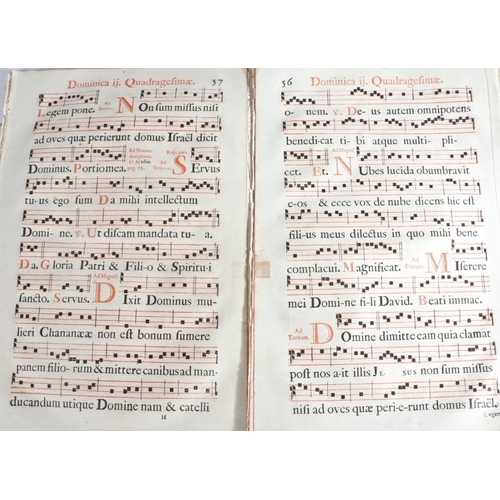 Dominica ij. Quadragesimæ. 57
Legem pone. Ad Sextam. Non sum missus nisi
ad oves quæ perierunt domus Israël dicit
Dominus. Portio mea. Servus
tu-us ego sum Da mihi intellectum
Domi-ne. ℣. Ut discam mandata tu- a.
Da. Gloria Patri & Fili-o & Spiritu-i
Ad Magnif.
sancto. Servus. Dixit Dominus mu-
lieri Chananææ non est bonum sumere
panem filio-rum & mittere canibus ad man-
ducandum utique Domine nam & catelli
H
56 Dominica ij. Quadragesimæ.
o- nem. ℣. De-us autem omnipotens
benedi-cat ti-bi atque multi-pli-
Ad Magnif.
cet. Et. Nubes lucida obumbravit
e-os & ecce vox de nube dicens hic est
fili-us meus dilectus in quo mihi bene
complacui. Magnificat. Miserere
mei Domi-ne fi-li David. Beati immac.
Ad Tertiam. Domine dimitte eam quia clamat
post nos a-it illis Je- sus non sum missus
nisi ad oves quæ peri-e-runt domus Israël.
Legem